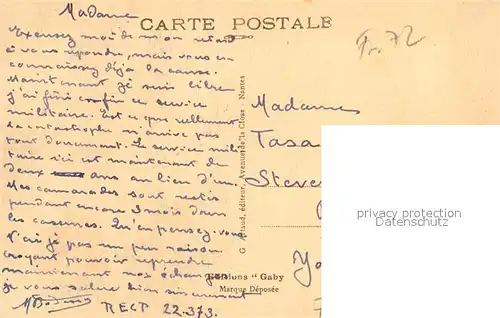 Madame
CARTE POSTALE
Excusez moi de mon retard
à vous répondre, mais vous en
connaissez déjà la cause.
Maintenant je suis libre
j'ai fini enfin ce service
militaire. Est ce que réellement
la catastrophe n'arrive pas
tout doucement. Le service mili
taire ici est maintenant de
deux ans au lieu d'un.
Mes camarades sont restés
pendant encore 3 mois dans
les casernes. Qu'en pensez-vous
N'ai je pas un peu raison
croyant pouvoir reprendre
maintenant nos échanges
je vous salue bien sincèrement
RECP 22.373.
Fr. 72
G. Artaud, éditeur, Avenue de la Close - Nantes
Madame
Tasa
Steve
Yo
privacy protection
Datenschutz
"Gaby
Marque Déposée